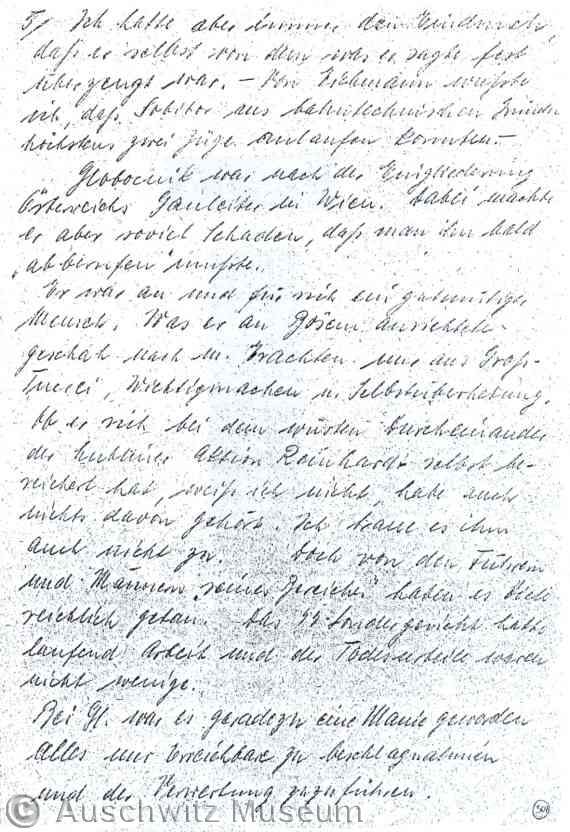 5/ Ich hatte aber immer den Eindruck,
daß er selbst von dem was er sagte fest
überzeugt war. – Von Eichmann wußte
ich, daß Sobibor aus bahntechnischen Gründen
höchstens zwei Züge anlaufen konnten. –
Globocnik war nach der Eingliederung
Österreichs Gauleiter in Wien. Dabei machte
er aber soviel Schaden, daß man ihn bald
„abberufen" mußte.
Er war an und für sich ein gutmütiger
Mensch. Was er an Bösem anrichtete
geschah nach m. Erachten nur aus Groß-
Tuerei, Wichtigmachen u. Selbstüberhebung.
Ob er sich bei dem wüsten Durcheinander
der Lubliner Aktion Reinhardt selbst be-
reichert hat, weiß ich nicht, habe auch
nichts davon gehört. Ich traue es ihm
auch nicht zu. Doch von den Führern
und Männern „seines Bereiches" haben es viele
reichlich getan. Das SS Sondergericht hatte
laufend Arbeit und der Todesurteile waren
nicht wenige.
Bei Gl. war es geradezu eine Manie geworden
alles nur Erreichbare zu beschlagnahmen
und der Verwertung zuzuführen.
© Auschwitz Museum